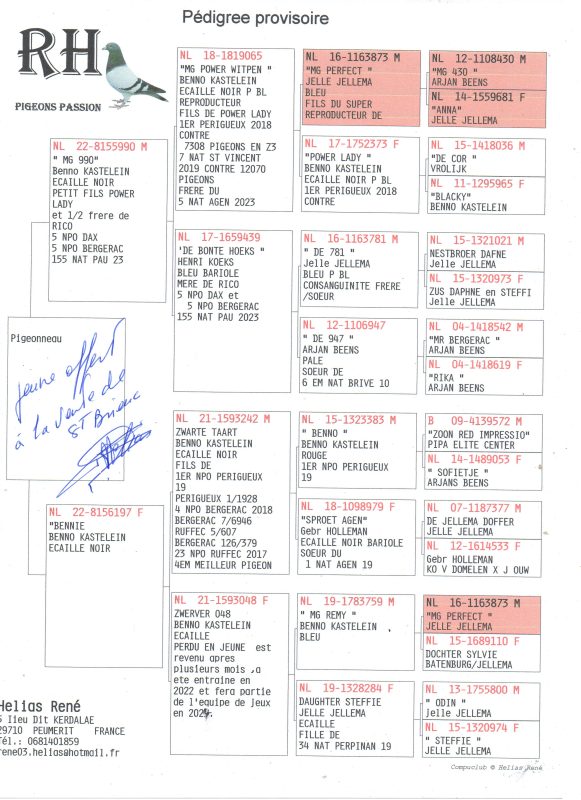 Pédigree provisoire
RH
PIGEONS PASSION
Pigeonneau
jeune offert
à la vente de
ST Brieuc
NL 22-8155990 M
" MG 990"
Benno KASTELEIN
ECAILLE NOIR
PETIT FILS POWER
LADY
et 1/2 frere de
RICO
5 NPO DAX
5 NPO BERGERAC
155 NAT PAU 23
NL 22-8156197 F
"BENNIE
BENNO KASTELEIN
ECAILLE NOIR
NL 18-1819065
"MG POWER WITPEN "
BENNO KASTELEIN
ECAILLE NOIR P BL
REPRODUCTEUR
FILS DE POWER LADY
1ER PERIGUEUX 2018
CONTRE
7308 PIGEONS EN Z3
7 NAT ST VINCENT
2019 CONTRE 12070
PIGEONS
FRERE DU
5 NAT AGEN 2023
NL 17-1659439
'DE BONTE HOEKS "
HENRI KOEKS
BLEU BARIOLE
MERE DE RICO
5 NPO DAX et
5 NPO BERGERAC
155 NAT PAU 2023
NL 21-1593242 M
ZWARTE TAART
BENNO KASTELEIN
ECAILLE NOIR
FILS DE
1ER NPO PERIGUEUX
19
PERIGUEUX 1/1928
4 NPO BERGERAC 2018
BERGERAC 7/6946
RUFFEC 5/607
BERGERAC 126/379
23 NPO RUFFEC 2017
4EM MEILLEUR PIGEON
NL 21-1593048 F
ZWERVER 048
BENNO KASTELEIN
ECAILLE
PERDU EN JEUNE est
revenu apres
plusieurs mois ,a
ete entraine en
2022 et fera partie
de l'equipe de jeux
en 2024.
NL 16-1163873 M
"MG PERFECT "
JELLE JELLEMA
BLEU
FILS DU SUPER
REPRODUCTEUR DE
NL 17-1752373 F
"POWER LADY "
BENNO KASTELEIN
ECAILLE NOIR P BL
1ER PERIGUEUX 2018
CONTRE
NL 16-1163781 M
" DE 781 "
Jelle JELLEMA
BLEU P BL
CONSANGUINITE FRERE
/SOEUR
NL 12-1106947
" DE 947 "
ARJAN BEENS
PALE
SOEUR DE
6 EM NAT BRIVE 10
NL 15-1323383 M
" BENNO "
BENNO KASTELEIN
ROUGE
1ER NPO PERIGUEUX
19
NL 18-1098979 F
"SPROET AGEN"
Gebr HOLLEMAN
ECAILLE NOIR BARIOLE
SOEUR DU
1 NAT AGEN 19
NL 19-1783759 M
" MG REMY "
BENNO KASTELEIN
BLEU
NL 19-1328284 F
DAUGHTER STEFFIE
JELLE JELLEMA
ECAILLE
FILLE DE
34 NAT PERPINAN 19
NL 12-1108430 M
"MG 430 "
ARJAN BEENS
NL 14-1559681 F
"ANNA"
JELLE JELLEMA
NL 15-1418036 M
"DE COR "
VROLIJK
NL 11-1295965 F
"BLACKY"
BENNO KASTELEIN
NL 15-1321021 M
NESTBROER DAFNE
Jelle JELLEMA
NL 15-1320973 F
ZUS DAPHNE en STEFFI
Jelle JELLEMA
NL 04-1418542 M
"MR BERGERAC "
ARJAN BEENS
NL 04-1418619 F
"RIKA "
ARJAN BEENS
B 09-4139572 M
"ZOON RED IMPRESSIO"
PIPA ELITE CENTER
NL 14-1489053 F
" SOFIETJE "
ARJANS BEENS
NL 07-1187377 M
DE JELLEMA DOFFER
JELLE JELLEMA
NL 12-1614533 F
Gebr HOLLEMAN
KO V DOMELEN X J OUW
NL 16-1163873 M
"MG PERFECT "
JELLE JELLEMA
NL 15-1689110 F
DOCHTER SYLVIE
BATENBURG/JELLEMA
NL 13-1755800 M
" ODIN "
jelle JELLEMA
NL 15-1320974 F
" STEFFIE "
JELLE JELLEMA
Helias René
5 Iieu Dit KERDALAE
29710 PEUMERIT FRANCE
Tél.: 0681401859
rene03.helias@hotmail.fr
Compuclub © Helias René